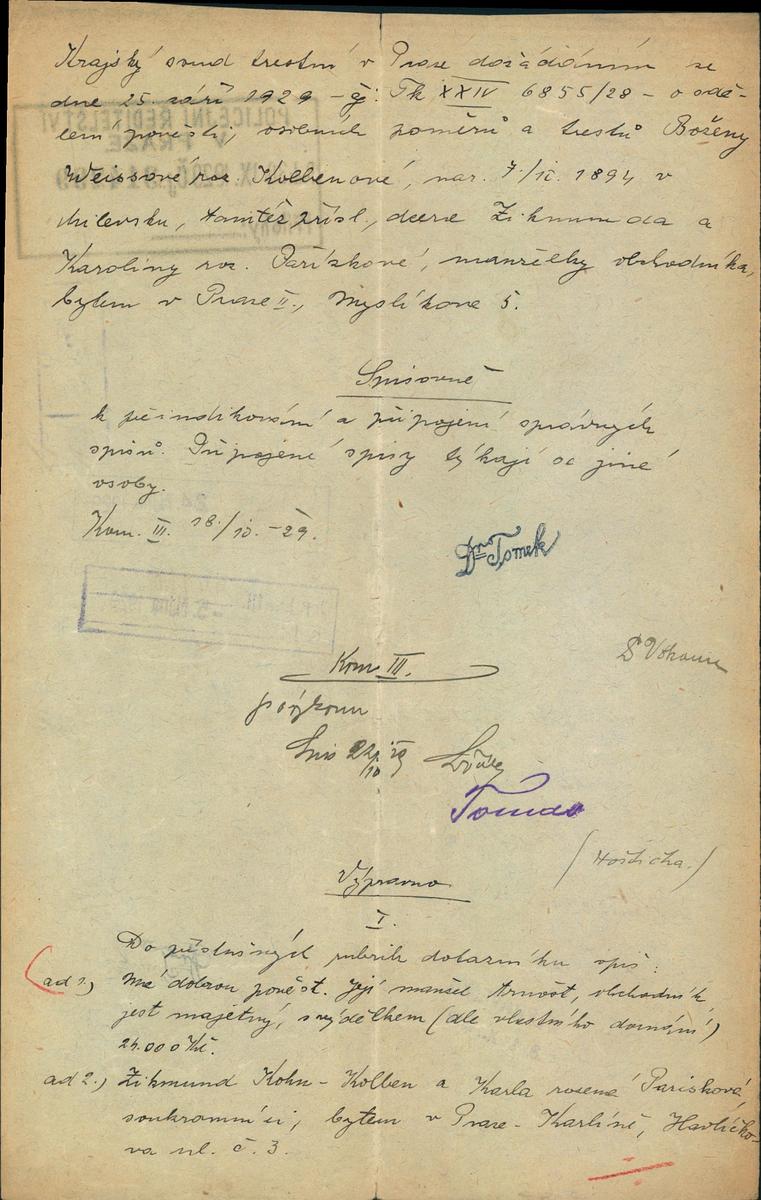 Krajský soud trestní v Praze dožádáním ze
dne 25. září 1929 - čj: Tk XXIV 6855/28 - o sdě-
lení pověsti, osobních poměrů a trestů Boženy
Weissové roz. Kolbenové, nar. 7/IX. 1894 v
Milevsku, tamtéž přísl., dcera Zikmunda a
Karoliny roz. Pařízkové, manželky obchodníka,
bytem v Praze II., Myslíkova 5.
Spisovně
k přeindikování a připojení správných
spisů. Připojené spisy týkají se jiné
osoby.
Kom. III. 18./10. - 29.
Dr Tomek
Kom III.
Spis 22/10 29
(Hoštička.)
Výpravna
I.
Do příslušných rubrik dotazníku opiš:
ad 1.) Má dobrou pověst. Její manžel Arnošt, obchodník
jest majetný, s výdělkem (dle vlastního doznání)
24.000 Kč.
ad 2.) Zikmund Kohn - Kolben a Karla rozená Parisková,
soukromníci, bytem v Praze - Karlíně, Havlíčko-
va ul. č. 3.